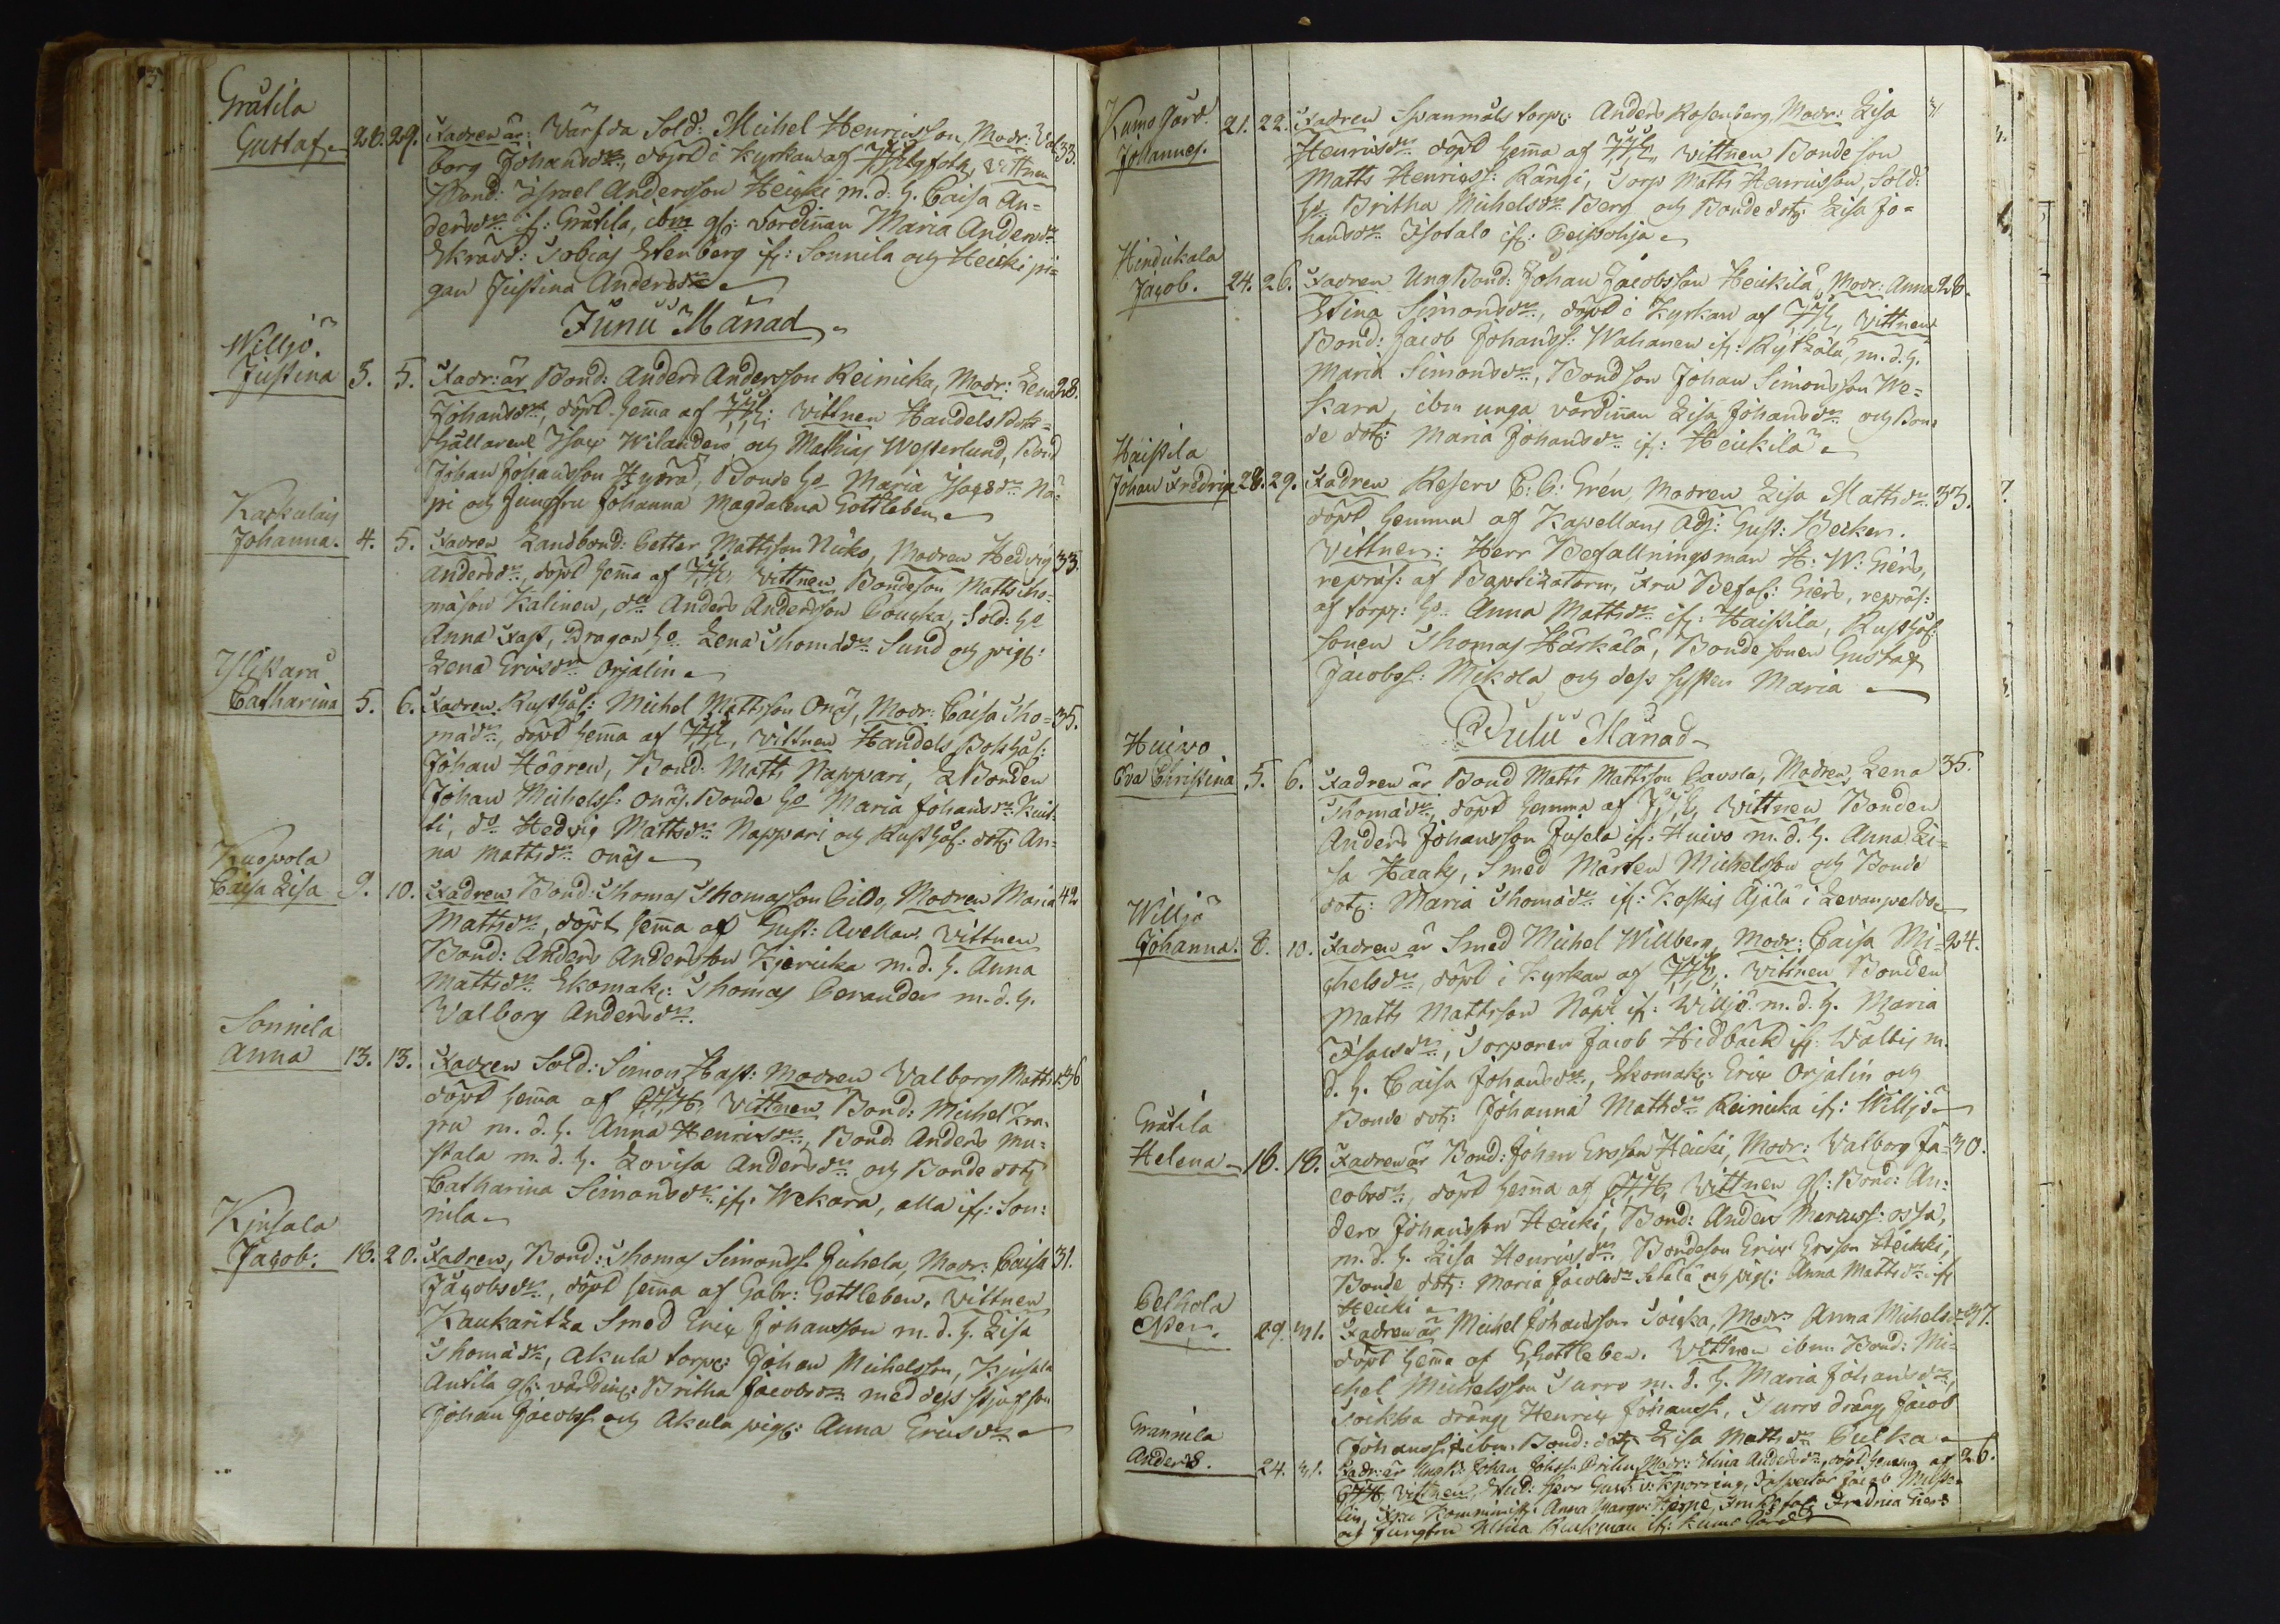 Gråtila
Gustaf 28. 29. Fadren är: Värfda Sold: Michel Henricsson, Modr: Val 33.
borg Johansdr., döpt i Kyrkan af vittnen
Bond: Israel Andersson Heicki m. d. h. Caisa An=
dersdr. if: Gråtila, ibm gl: värdinnan Maria Andersdr.
Skrädd: Tobias Stenberg if: Sonnila och Heicki pi=
gan Justina Andersdr.
Junii Månad
Willjo
Justina 3. 5. Fadr: är Bond: Anders Andersson Reinicka, Modr: Lena 28.
Johansdr., döpt hema af vittnen Handels Bok=
hållarene Isac Wilanders och Mathias Westerlund, Bond
Johan Johansson Hyörä, Bonde ho Maria Isacsdr. Nä=
pi och Jungfru Johanna Magdalena Gottleben
Karkulais
Johanna. 4. 5. Fadren Landbond: Petter Mattsson Nicko, Modren Hedvig 33.
Andersdr., döpt hema af vittnen Bondeson Matts Tho=
mäson Kalinen, do Anders Andersson Poucka, Sold: ho
Anna Fast, Dragon ho Lena Thomädr. Sund och pig:
Lena Ericsdr Orjalin
Ylistarä
Catharina 5. 6. Fadren Rusthål: Michel Mattsson Onäs, Modr: Caisa Tho= 35.
mädr., döpt hema af vittnen Handels Bokhål:
Johan Högren, Bond: Matts Nappari, L Bonden
Johan Michelss: Onäs. Bonde ho Maria Johansdr. Kuit=
ti, do Hedvig Mattsdr. Nappari och Rusthål: dot: An=
na Mattsdr. Onäs
Kuopola
Caisa Lisa 9. 10. Fadren Bond: Thomas Thomasson Pildo, Modren Maria 42
Mattsdr., döpt hema af Gust: Avellan. vittnen
Bond: Anders Andersson Kjericka m. d. h. Anna
Mattsdr. Skomak: Thomas Cerander m. d. h.
Valborg Andersdr.
Sonnila
Anna 13. 13. Fadren Sold: Simon Hast: Modren Valborg Mattsdr 46
döpt hema af vittnen Bond: Michel
m. d. h. Anna Henricsdr., Bond Anders Mu=
stala m. d. h. Lovisa Andersdr. och Bonde dot:
Catharina Simonsdr. if: Wekara, alla if: Son:
nila
Kjusala
Jacob: 18. 20. Fadren, Bond: Thomas Simonss: Juhela, Modr: Caisa 31.
Jacobsdr., döpt hema af Gabr: Gottleben. vittnen
Kaukaritza Smed Eric Johansson m. d. h. Lisa
Thomädr., Akula torp: Johan Michelsson, Kjusala
Anttila gl: värdin: Britha Jacobsdr. med dess stjufson
Johan Jacobss: och Akula pig: Anna Ericsdr.
Kumo Gård
Johannes. 21. 22. Fadren Spanmåls torp: Anders Rosenberg, Modr: Lisa
Henricsdr. döpt hema af vittnen Bondeson
Matts Henricss: Rängi, Torp Matts Henricsson, Sold:
ho Britha Michelsdr. Berg och Bonde dot: Lisa Jo=
hansdr. Isotalo if: Peipohja
Hindickala
Jacob. 24. 26. Fadren Ung Bond: Johan Jacobsson Heickilä, Modr: Anna 28.
Stina Simonsdr., döpt i Kyrkan af vittnen
Bond: Jacob Johanss: Wahanen if: Rytkälä, m. d. h.
Maria Simonsdr., Bondson Johan Simonsson We=
kara, ibm unga värdinnan Lisa Johansdr. och Bon=
de dot: Maria Johansdr. if: Heickilä
Haistila
Johan Fredric 28. 29. Fadren Reserv C: C: Grén, Modren Lisa Mattsdr. 33.
döpt hemma af Kapellans Adj: Gust: Becker.
Vittnen: Herr Befallningsman H: W: Giers,
repräs: af Baptizatorn, Fru Befal: Giers, repräs:
af torp: ho Anna Mattsdr. if: Haistila, Rusthål:
sonen Thomas Härkälä, Bonde sonen Gustaf
Jacobss: Mickola och dess syster Maria
Julii Månad
Huivo
Eva Christina 5. 6. Fadren är Bond Matts Mattsson Pavola, Modren Lena 35.
Thomädr., döpt hemma af vittnen Bonden
Anders Johansson Jusela if: Huivo m. d. h. Anna Li=
sa Haaks, Smed Mårten Michelsson och Bonde
dot: Maria Thomädr. if: Koskis Äjälä i Levanpelto
Willjo
Johanna. 8. 10. Fadren är Smed Michel Willberg, Modr: Caisa Mi= 24.
chelsdr., döpt i Kyrkan af vittnen Bonden
Matts Mattsson Näpi if: Willjo m. d. h. Maria
Isacsdr., Torparen Jacob Hidbäck if: Wallis m.
d. h. Caisa Johansdr., Skomak: Eric Orjalin och
Bonde dot: Johanna Mattsdr. Reinicka if: Willjo
Gråtila
Helena 16. 18. Fadren är Bond: Johan Ersson Heicki, Modr: Valborg Ja= 30.
cobsdr., döpt hema af vittnen gl: Bond: An=
ders Johansson Heicki, Bond: Anders Marcuss: Ossa,
m. d. h. Lisa Henricsdr. Bondeson Eric Ersson Heicki,
Bonde dot: Maria Jacobsdr Setälä och pig: Anna Mattsdr if
Heicki
Pelhola
29. 31. Fadren är Michel Johansson Soicka, Modr: Anna Michelsdr 37.
döpt hema af Gottleben. Vittnen ibm: Bond: Mi=
chel Michelsson Surro m. d. h. Maria Johansdr.,
Soicka dräng Henric Johanss:, Surro dräng Jacob
Johanss: ibm: Bond: dot: Lisa Mattsdr
Grannila
Anders. 24. 31. Fadr: är Ung B: Johan Johss: Modr: Stina Andersdr, döpt hemma af 26.
vittnen, Stud: Herr Gust: v: Knorring, Inspector Jacob
lin, Fru Komminist: Anna Margr: Hjerpe, Fru Befal: Fredrica Giers
och Jungfru Ulrica if: Kumo Gård